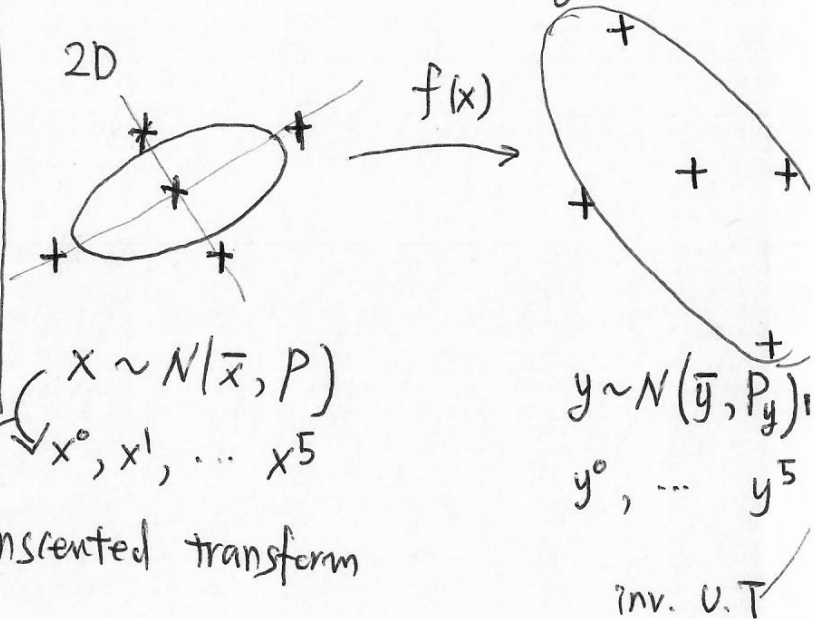 2D
f(x)
x ~ N(x̄, P)
x⁰, x¹, ... x⁵
nscented transform
y ~ N(ȳ, P_y)
y⁰, ... y⁵
inv. U.T